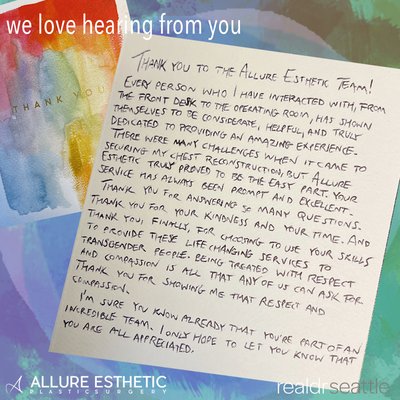 we love hearing from you
THANK YOU
THANK YOU TO THE ALLURE ESTHETIC TEAM!
EVERY PERSON WHO I HAVE INTERACTED WITH, FROM
THE FRONT DESK TO THE OPERATING ROOM, HAS SHOWN
THEMSELVES TO BE CONSIDERATE, HELPFUL, AND TRULY
DEDICATED TO PROVIDING AN AMAZING EXPERIENCE.
THERE WERE MANY CHALLENGES WHEN IT CAME TO
SECURING MY CHEST RECONSTRUCTION, BUT ALLURE
ESTHETIC TRULY PROVED TO BE THE EASY PART. YOUR
SERVICE HAS ALWAYS BEEN PROMPT AND EXCELLENT.
THANK YOU FOR ANSWERING SO MANY QUESTIONS.
THANK YOU FOR YOUR KINDNESS AND YOUR TIME. AND
THANK YOU, FINALLY, FOR CHOOSING TO USE YOUR SKILLS
TO PROVIDE THESE LIFE CHANGING SERVICES TO
TRANSGENDER PEOPLE. BEING TREATED WITH RESPECT
AND COMPASSION IS ALL THAT ANY OF US CAN ASK FOR.
THANK YOU FOR SHOWING ME THAT RESPECT AND
COMPASSION.
I'M SURE YOU KNOW ALREADY THAT YOU'RE PART OF AN
INCREDIBLE TEAM. I ONLY HOPE TO LET YOU KNOW THAT
YOU ARE ALL APPRECIATED.
ALLURE ESTHETIC
PLASTIC SURGERY
realdrseattle